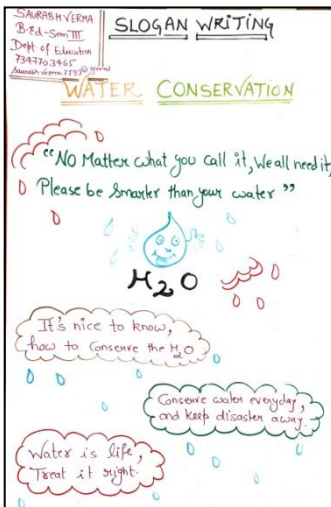 SAURABH VERMA
B.Ed-Sem III
Dept of Education
7347703465
SLOGAN WRITING
WATER CONSERVATION
“No Matter what you call it, We all need it,
Please be Smarter than your water”
H2O
It's nice to know,
how to conserve the H2O
Conserve water everyday,
and keep disaster away.
Water is life,
Treat it right.